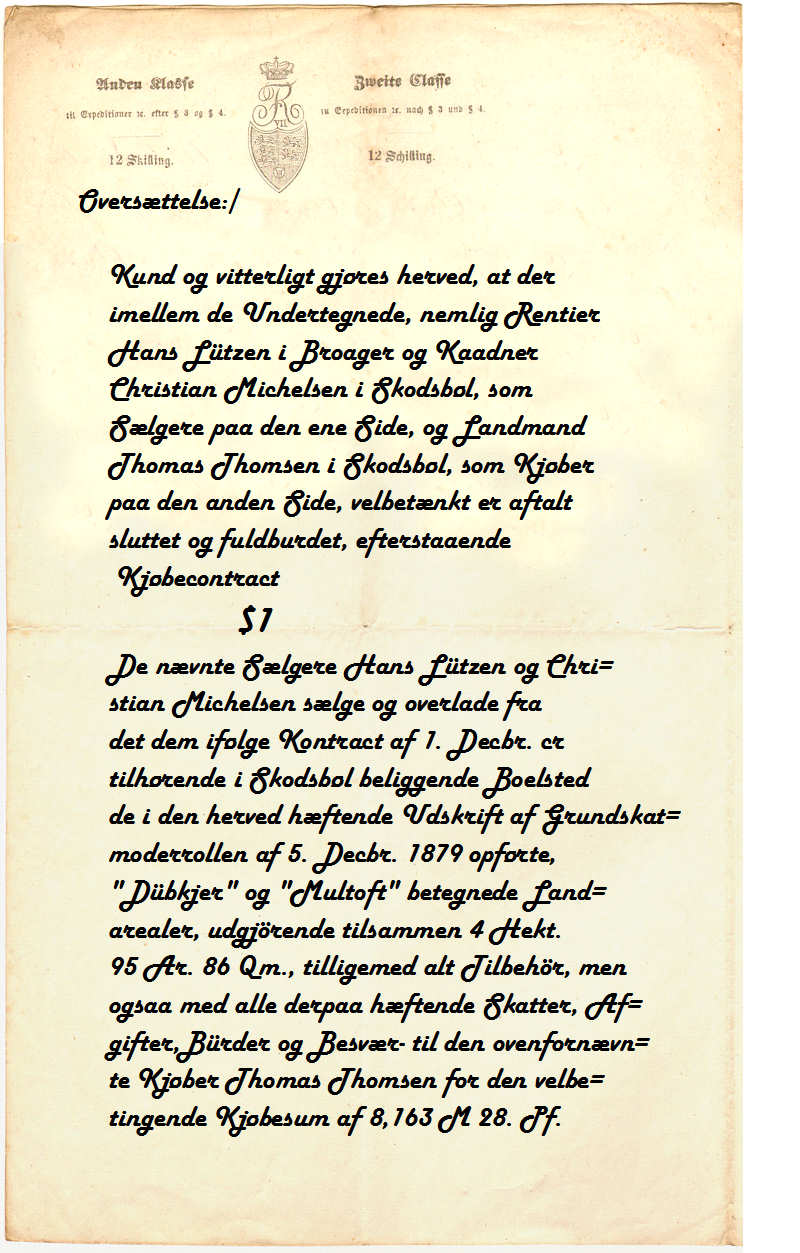 Anden Klasse
Zweite Classe
til Expeditioner ꝛc. efter § 3 og § 4.
zu Expeditionen ꝛc. nach § 3 und § 4.
FR
VII
12 Skilling.
12 Schilling.
Oversættelse:/
Kund og vitterligt gjøres herved, at der
imellem de Undertegnede, nemlig Rentier
Hans Lützen i Broager og Kaadner
Christian Michelsen i Skodsbøl, som
Sælgere paa den ene Side, og Landmand
Thomas Thomsen i Skodsbøl, som Kjøber
paa den anden Side, velbetænkt er aftalt
sluttet og fuldburdet, efterstaaende
Kjøbecontract
$1
De nævnte Sælgere Hans Lützen og Chri=
stian Michelsen sælge og overlade fra
det dem ifølge Kontract af 1. Decbr. cr
tilhørende i Skodsbøl beliggende Boelsted
de i den herved hæftende Udskrift af Grundskat=
moderrollen af 5. Decbr. 1879 opførte,
"Dübkjer" og "Multoft" betegnede Land=
arealer, udgjörende tilsammen 4 Hekt.
95 Ar. 86 Qm., tilligemed alt Tilbehör, men
ogsaa med alle derpaa hæftende Skatter, Af=
gifter, Bürder og Besvær- til den ovenfornævn=
te Kjøber Thomas Thomsen for den velbe=
tingende Kjøbesum af 8,163 M 28. Pf.